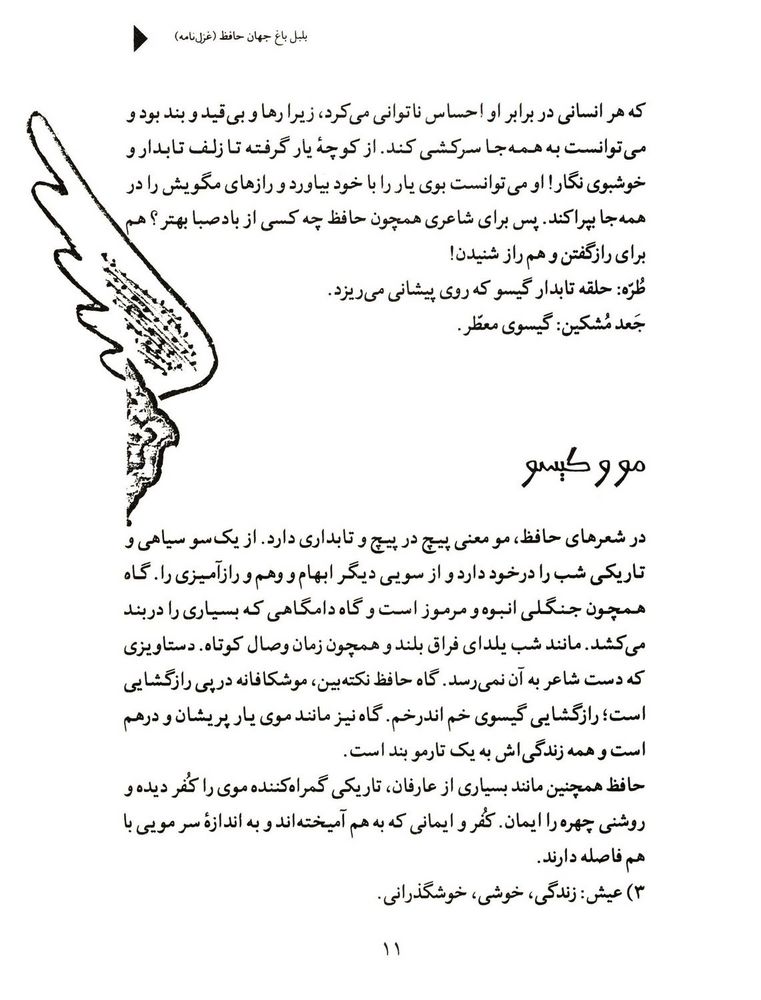 بلبل باغ جهان حافظ (غزل‌نامه)
که هر انسانی در برابر او احساس ناتوانی می‌کرد، زیرا رها و بی‌قید و بند بود و
می‌توانست به همه‌جا سرکشی کند. از کوچهٔ یار گرفته تا زلف تابدار و
خوشبوی نگار! او می‌توانست بوی یار را با خود بیاورد و رازهای مگویش را در
همه‌جا بپراکند. پس برای شاعری همچون حافظ چه کسی از بادصبا بهتر؟ هم
برای رازگفتن و هم راز شنیدن!
طُرّه: حلقه تابدار گیسو که روی پیشانی می‌ریزد.
جَعد مُشکین: گیسوی معطّر.
مو و گیسو
در شعرهای حافظ، مو معنی پیچ در پیچ و تابداری دارد. از یک‌سو سیاهی و
تاریکی شب را درخود دارد و از سویی دیگر ابهام و وهم و رازآمیزی را. گاه
همچون جنگلی انبوه و مرموز است و گاه دامگاهی که بسیاری را دربند
می‌کشد. مانند شب یلدای فراق بلند و همچون زمان وصال کوتاه. دستاویزی
که دست شاعر به آن نمی‌رسد. گاه حافظ نکته‌بین، موشکافانه درپی رازگشایی
است؛ رازگشایی گیسوی خم اندرخم. گاه نیز مانند موی یار پریشان و درهم
است و همه زندگی‌اش به یک تارمو بند است.
حافظ همچنین مانند بسیاری از عارفان، تاریکی گمراه‌کننده موی را کُفر دیده و
روشنی چهره را ایمان. کُفر و ایمانی که به هم آمیخته‌اند و به اندازهٔ سر مویی با
هم فاصله دارند.
۳) عیش: زندگی، خوشی، خوشگذرانی.
۱۱